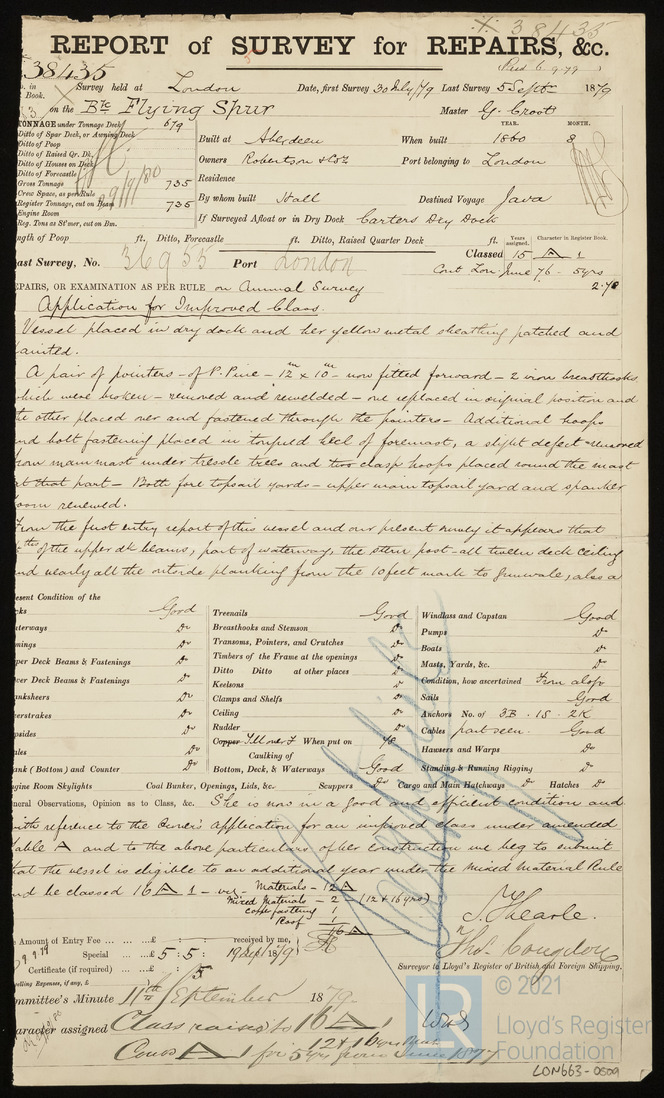 38435
REPORT of SURVEY for REPAIRS, &c.
38435
Survey held at London Date, first Survey 30 July/79 Last Survey 5 Septr 1879
Book.
on the Bk Flying Spur Master G. Croot
TONNAGE under Tonnage Deck 679
Ditto of Spar Deck, or Awning Deck
Ditto of Poop
Ditto of Raised Qr. Dk.
Ditto of Houses on Deck
Ditto of Forecastle
Gross Tonnage 735
Crew Space, as per Rule
Register Tonnage, cut on Beam 735
Engine Room
Reg. Tons as St'mer, cut on Bm.
YEAR. MONTH.
Built at Aberdeen When built 1860 8
Owners Robertson & Coz Port belonging to London
Residence
By whom built Hall Destined Voyage Java
If Surveyed Afloat or in Dry Dock Carters Dry Dock
ngth of Poop ft. Ditto, Forecastle ft. Ditto, Raised Quarter Deck ft.
Years assigned. Character in Register Book.
ast Survey, No. 36955 Port London Classed 15 A 1
Cont Lon. June 76 - 5yrs
2.78
EPAIRS, OR EXAMINATION AS PER RULE on Annual Survey
Application for Improved Class.
Vessel placed in dry dock and her yellow metal sheathing patched and
ainted.
A pair of pointers - of P. Pine - 12in x 10in - now fitted forward - 2 iron breasthooks
hich were broken - removed and rewelded - one replaced in original position and
he other placed over and fastened through the pointers - Additional hoops
nd bolt fastening placed in heel of foremast, a slight defect removed
rom mainmast under tressle trees and two clasp hoops placed round the mast
at that part - Both fore topsail yards - upper main topsail yard and spanker
oom renewed.
From the first entry report of this vessel and our present survey it appears that
of the upper dk beams, part of waterway, the stern post - all tween deck ceiling
nd nearly all the outside planking from the 10 feet mark to gunwale, also a
esent Condition of the
cks Good
aterways Do
mings Do
per Deck Beams & Fastenings Do
wer Deck Beams & Fastenings Do
nksheers Do
erstrakes Do
psides Do
ales Do
ank (Bottom) and Counter Do
Treenails Good
Breasthooks and Stemson Do
Transoms, Pointers, and Crutches Do
Timbers of the Frame at the openings Do
Ditto Ditto at other places Do
Keelsons Do
Clamps and Shelfs Do
Ceiling Do
Rudder Do
Copper When put on 78
Caulking of
Bottom, Deck, & Waterways Good
Windlass and Capstan Good
Pumps Do
Boats Do
Masts, Yards, &c. Do
Condition, how ascertained From aloft
Sails Good
Anchors No. of 3B. 1S. 2K
Cables part seen. Good
Hawsers and Warps Do
Standing & Running Rigging Do
ngine Room Skylights Coal Bunker, Openings, Lids, &c. Scuppers Do Cargo and Main Hatchways Do Hatches Do
neral Observations, Opinion as to Class, &c. She is now in a good and efficient condition and
with reference to the Owner's Application for an improved class under amended
Table A and to the above particulars of her construction we beg to submit
that the vessel is eligible to an additional year under the Mixed Material Rule
nd be classed 16 A 1 - viz. Materials - 12 A
Mixed Materials - 2 - (12 & 16 yrs)
Copper fastening 1
Roof 1
16 A
J. Hearle.
Thos. Congdon
Surveyor to Lloyd's Register of British and Foreign Shipping.
e Amount of Entry Fee ... £ : : received by me,
Special ... £ 5 : 5 : 19 Sep 1879
Certificate (if required) : 5
velling Expenses, if any, £
ommittee's Minute 11th September 1879.
aracter assigned Class raised to 16 A 1
12 & 16 yrs Mat
Cond A 1 for 5 yrs from June 1877
© 2021
LR
Lloyd's Register
Foundation
LON663-0509